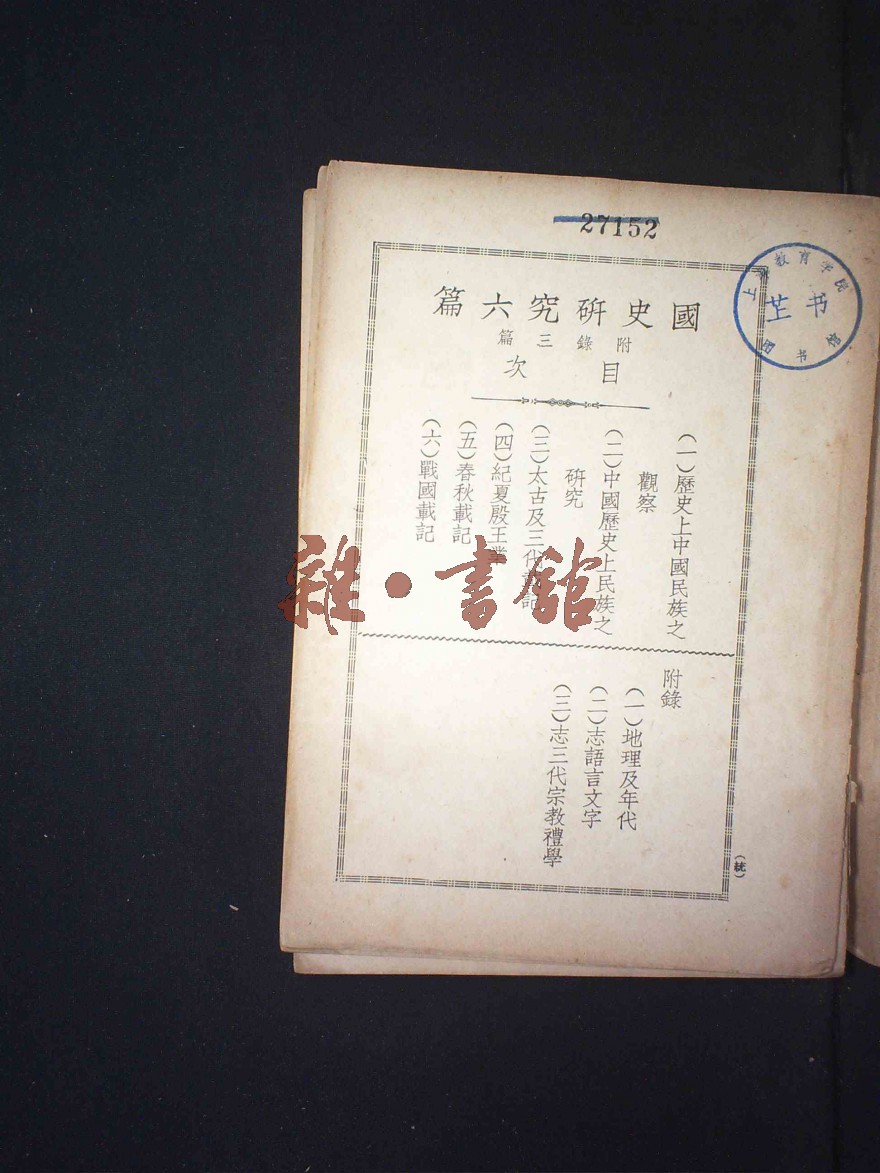 27152
國史研究六篇
附錄三篇
目次
(一)歷史上中國民族之
觀察
(二)中國歷史上民族之
研究
(三)太古及三代載記
(四)紀夏殷王業
(五)春秋載記
(六)戰國載記
附錄
(一)地理及年代
(二)志語言文字
(三)志三代宗教禮學
(統)
教育学院
书
雜·書館